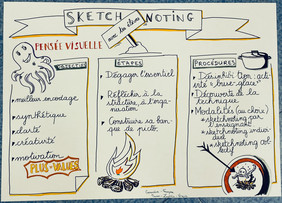 SKETCH NOTING
avec des élèves
PENSÉE VISUELLE
OBJECTIFS
meilleur encodage
synthétique
clarté
créativité
motivation
PLUS-VALUES
ÉTAPES
Dégager l'essentiel
Réfléchir à la
structure, à l'orga-
nisation
Construire sa ban-
que de picto.
PROCÉDURES
Désinhibition : acti-
vité "brise-glace"
Découverte de la
technique
Modalités (au choix)
sketchnoting par
l'enseignant
sketchnoting indivi-
duel
sketchnoting col-
lectif